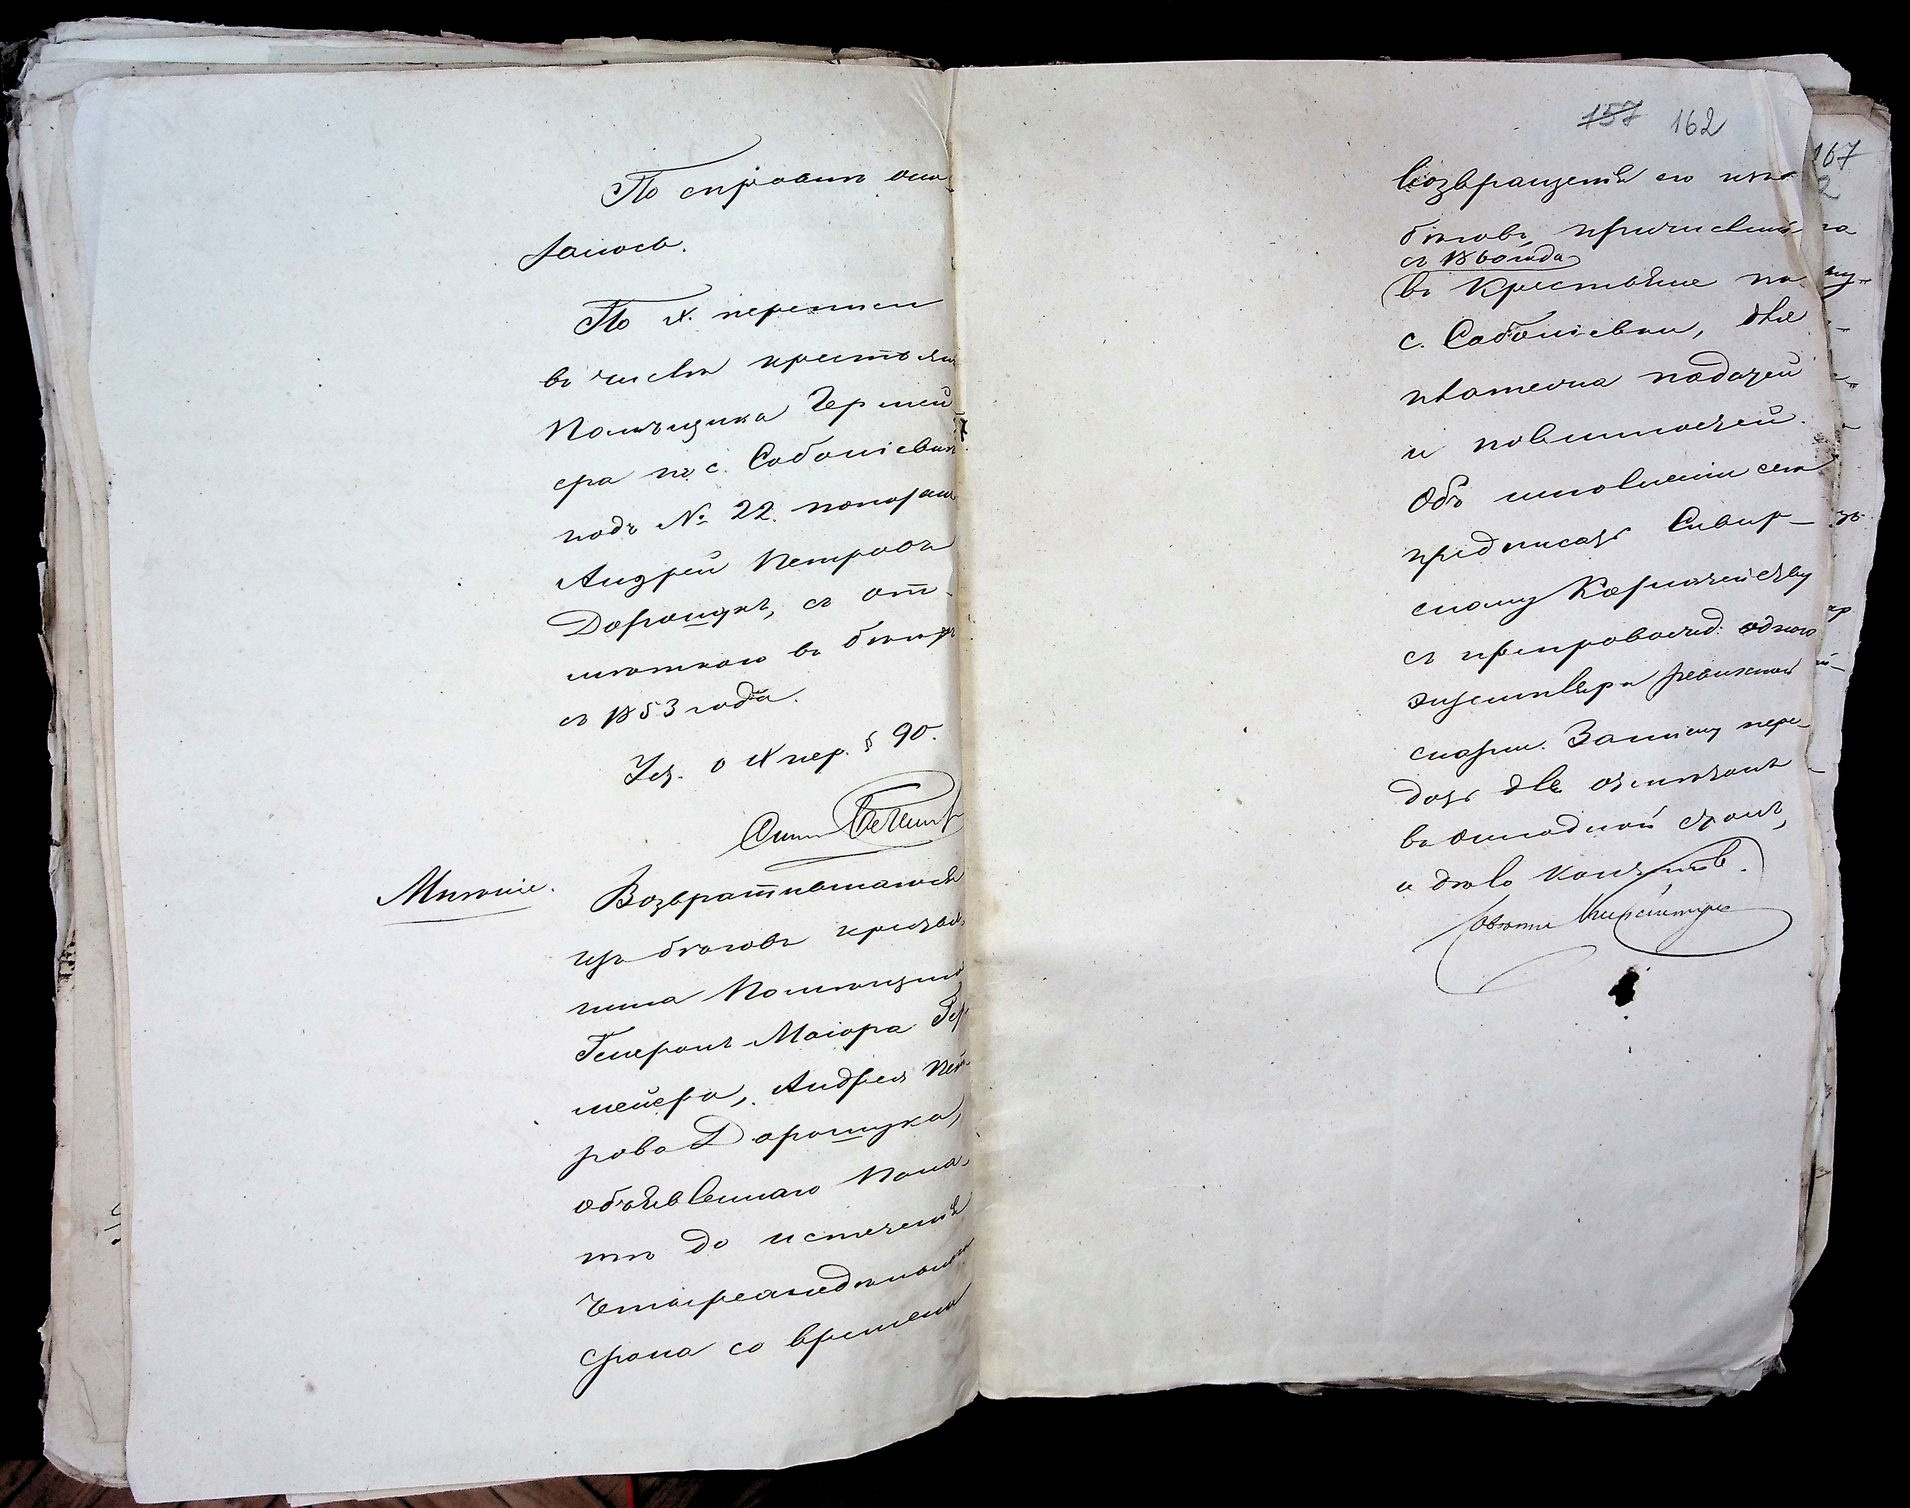 По справкѣ ока-
залось.
По X. переписи
въ числѣ крестьянъ
Помѣщика Гермей-
ера по с. Соболіевкѣ
подъ № 22. показанъ
Андрей Петровъ
Дорощукъ, съ от-
мѣткою въ бѣгахъ
съ 1853 года.
Уст. о X пер. § 90.
Мнѣніе.
Возвратившагося
изъ бѣговъ крестья-
нина Помѣщика
Генералъ Маіора Гер-
мейера, Андрея Пет-
рова Дорощука,
объявленнаго Пала-
тѣ до истеченія
четырехнедѣльнаго
срока со времени
157 162
возвращенія его изъ
бѣговъ, причислить
съ 1860 года
въ крестьяне по
с. Соболіевки, для
платежа податей
и повинностей.
Объ исполненіи сего
предписать
скому Казначейству
съ препровожд. одного
экземпляра ревизской
сказки. Записку пере-
дать для отмѣтки
въ окладной
и дѣло кончить.
167